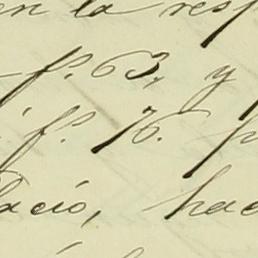 en la resp
f.º 63, y
f.º 76. p
dació, hac